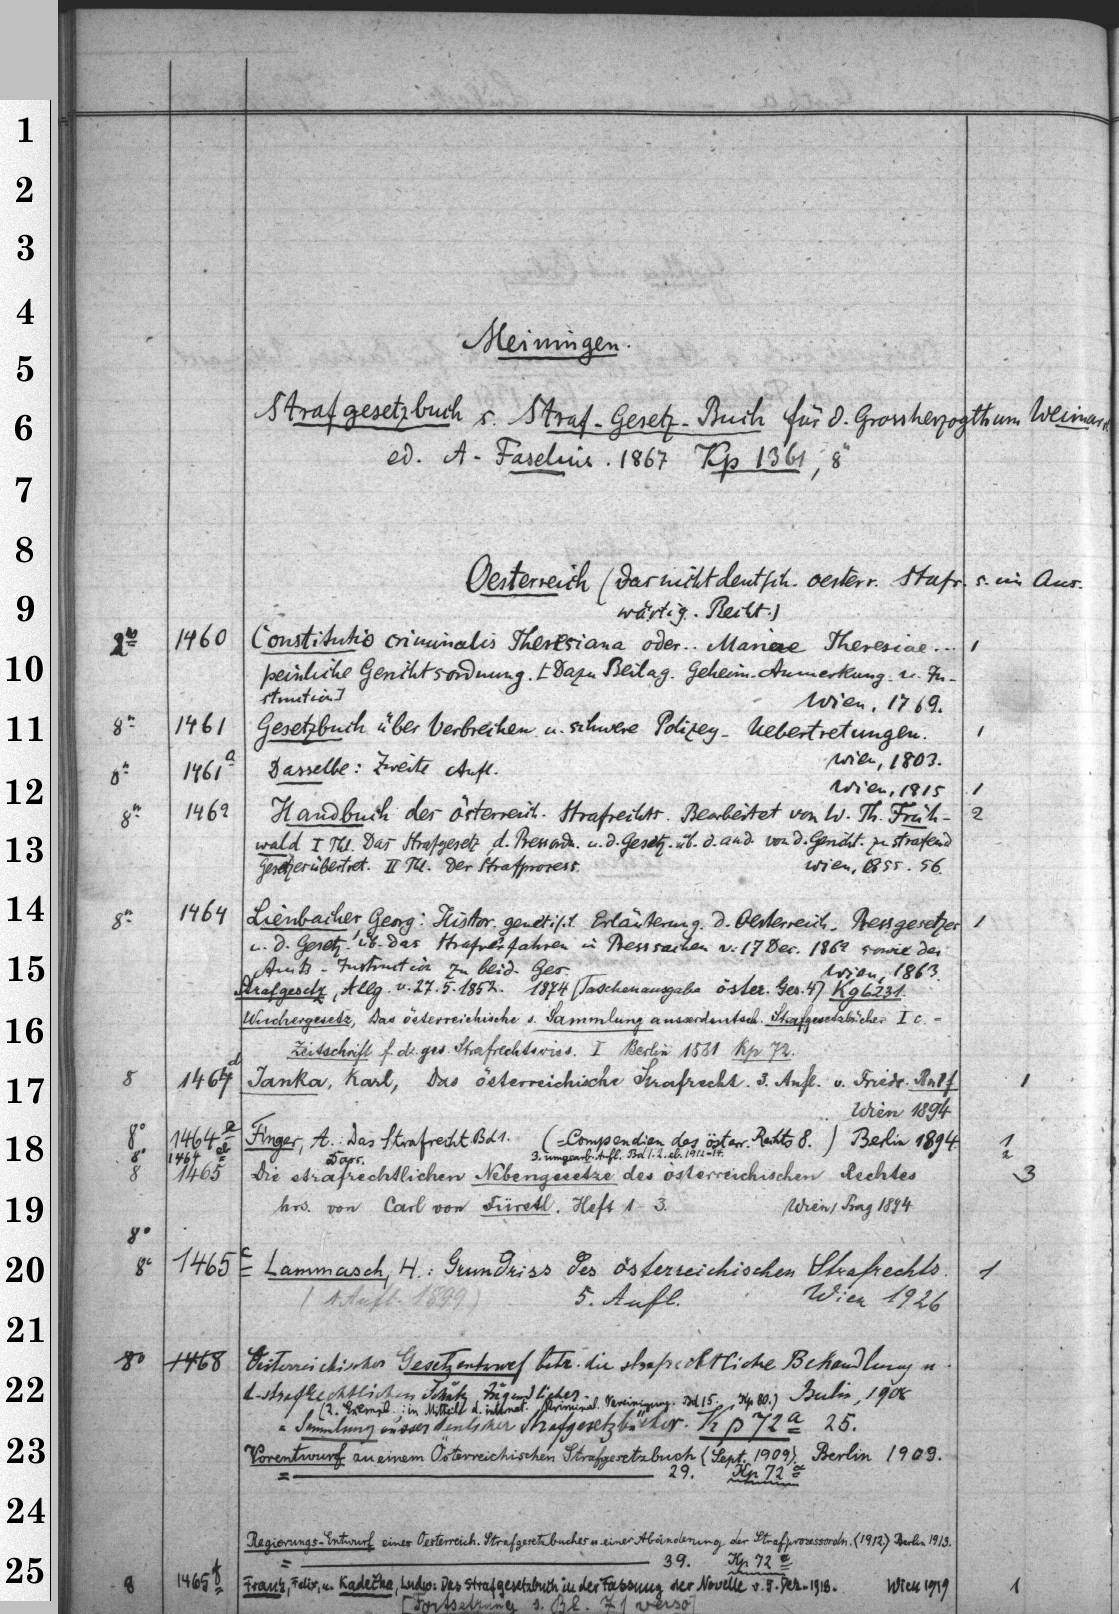 1
2
3
4
Meiningen.
5
Strafgesetzbuch s. Straf-Gesetz-Buch für d. Grossherzogthum Weimar
6
ed. A. Faselius. 1867 Kp 1361, 8°
7
8
Oesterreich (das nicht deutsch. oesterr. Strafr. s. in Aus-
9
wärtig. Recht.)
2° 1460 Constitutio criminalis Theresiana oder.. Mariae Theresiae... 1
10
peinliche Gerichtsordnung. [Dazu Beilag. Geheim. Anmerkung. u. In-
struction] Wien, 1769.
11
8° 1461 Gesetzbuch über Verbrechen u. schwere Polizey-Uebertretungen. 1
Wien, 1803.
8° 1461a Dasselbe: Zweite Aufl.
12
Wien, 1815 1
8° 1462 Handbuch des österreich. Strafrechts. Bearbeitet von W. Th. Früh- 2
13
wald I Thl. Das Strafgesetz d. Pressordn. u. d. Gesetz. üb. d. and. von d. Gericht. zu strafend
Gesetzesübertret. II Thl. Der Strafprozess. Wien, 1855. 56.
14
8° 1464 Lienbacher, Georg: Histor. genetisch. Erläuterung. d. Oesterreich. Pressgesetzes 1
u. d. Gesetz. üb. das Strafverfahren in Presssachen v. 17 Dec. 1862 sowie der
15
Amts-Instruction zu beid. Ges. Wien, 1863.
Strafgesetz, Allg. v. 27.5.1852. 1874 (Taschenausgabe öster. Ges. 4) Kg 6231.
16
Wuchergesetz, Das österreichische s. Sammlung ausserdeutsch. Strafgesetzbücher I c. =
Zeitschrift f. d. ges. Strafrechtswiss. I Berlin 1881 Kp 72.
17
8 1464d Janka, Karl, Das österreichische Strafrecht. 3. Aufl. v. Friedr. Rulf 1
Wien 1894
18
8° 1464e Finger, A.: Das Strafrecht Bd 1. (=Compendien des österr. Rechts 8.) Berlin 1894. 1
8° 1464 Dass. 3. umgearb. Aufl. Bd 1. 2. eb. 1912-14. 2
8 1465 Die strafrechtlichen Nebengesetze des österreichischen Rechtes 3
19
hrs. von Carl von Fürstl. Heft 1-3. Wien/Prag 1894
8°
20
8° 1465c Lammasch, H.: Grundriss des österreichischen Strafrechts. 1
(1. Aufl. 1899) 5. Aufl. Wien 1926
21
8° 1468 Oesterreichischer Gesetzentwurf betr. die strafrechtliche Behandlung u.
22
d. strafrechtlichen Schutz Jugendlicher. Berlin, 1908
(2. Exempl. in Mitteil. d. internat. Kriminal. Vereinigung. Bd 15. Kp 80.)
= Sammlung ausserdeutscher Strafgesetzbücher. Kp 72a 25.
23
Vorentwurf zu einem Österreichischen Strafgesetzbuch (Sept. 1909). Berlin 1909.
= 29. Kp 72a
24
Regierungs-Entwurf eines Oesterreich. Strafgesetzbuches u. einer Abänderung der Strafprozessordn. (1912) Berlin 1913.
= 39. Kp 72a
25
8 1465f Frank, Felix, u. Kadečka, Ludw: Das Strafgesetzbuch in der Fassung der Novelle v. 5. Dez. 1918. Wien 1919 1
[Fortsetzung s. Bl. 71 verso]